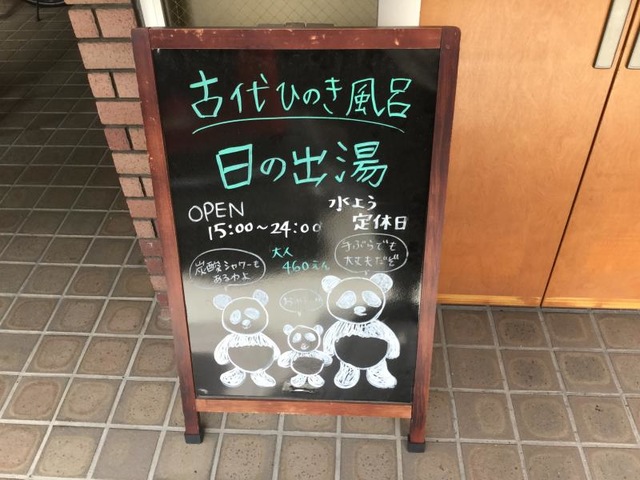 古代ひのき風呂
日の出湯
OPEN
15:00～24:00
水よう
定休日
大人
460えん
炭酸シャワーも
あるわよ
手ぶらでも
大丈夫だぞ